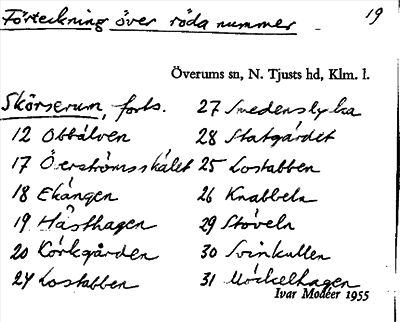 Förteckning över röda nummer 19
Överums sn, N. Tjusts hd, Klm. l.
Skörserum, forts.
12 Obbálven
17 Överströmsskálet
18 Ekángen
19 Hásthagen
20 Körkgården
24 Lostabben
27 Smedenslycka
28 Statgárdet
25 Lostabben
26 Knabbeln
29 Stöveln
30 Svinkullen
31 Möckelhagen
Ivar Modéer 1955